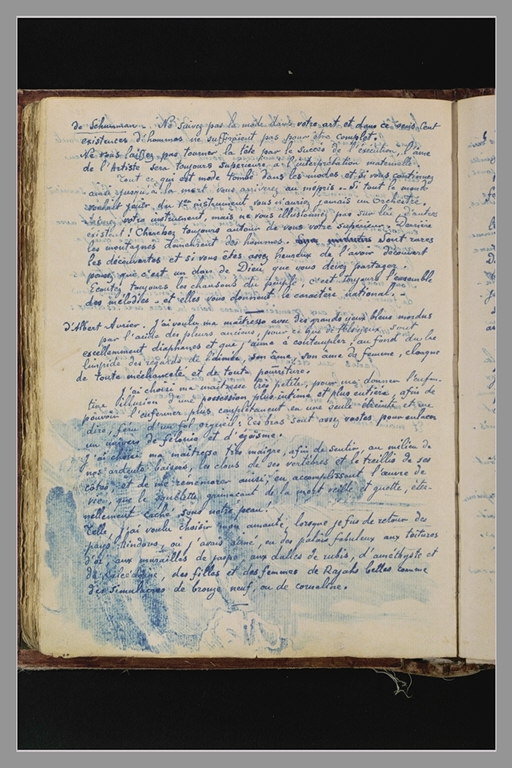 de Schumann. - Ne suivez pas la mode dans votre art, et dans ce sens cent
existences d'hommes ne suffiraient pas pour être complet.
Ne vous laissez pas tourner la tête par le succès de l'exécution, l'âme
de l'Artiste sera toujours supérieure à l'interprétation matérielle.
Tout ce qui est mode tombe dans les modes et si vous continuez
ainsi jusqu'à la mort vous arriverez au mépris - Si tout le monde
voulait jouer du 1er instrument vous n'auriez jamais un Orchestre.
votre instrument, mais ne vous illusionnez pas sur lui d'autres
existent! Cherchez toujours autour de vous votre supérieur. Derrière
les montagnes demeurent des hommes. sont rares
les découvertes et si vous êtes assez heureux de l'avoir découvert
pensez que c'est un don de Dieu que vous devez partager.
Ecoutez toujours les chansons du peuple c'est toujours l'ensemble
des mélodies - et elles vous donnent le caractère national. -
d'Albert Aurier. J'ai voulu ma maîtresse avec des grands yeux bleus mordus
par l'audace des pleurs anciens, pour ce que de telles sont
excellemment diaphanes et que j'aime à contempler, au fond du lac
limpide des regards de l'aimée, son âme, son âme de femme,
de toute méchanceté et de toute pourriture.
J'ai choisi ma maîtresse très petite, pour me donner l'enfan-
tine illusion d'une possession plus intime et plus entière, afin de
pouvoir l'enfermer plus complètement en une seule étreinte et me
dire, féru d'un fol orgueil: Tes bras sont assez vastes pour enlacer
un univers de félonie et d'égoïsme.
J'ai choisi ma maîtresse très maigre, afin de sentir au milieu de
nos ardents baisers, les clous de ses vertèbres et le treillis de ses
côtes et de me remémorer ainsi, en accomplissant l'œuvre de
vie, que le squelette grimaçant de la mort veille et guette, éter-
nellement caché sous notre peau!
Telle, j'ai voulu choisir mon amante, lorsque je fus de retour des
pays hindous, où j'avais aimé, en des palais fabuleux aux toitures
d'or, aux murailles de jaspe aux dalles de rubis, d'améthyste et
de calcédoine, des filles et des femmes de Rajahs belles comme
des simulacres de bronze neuf, ou de cornaline.